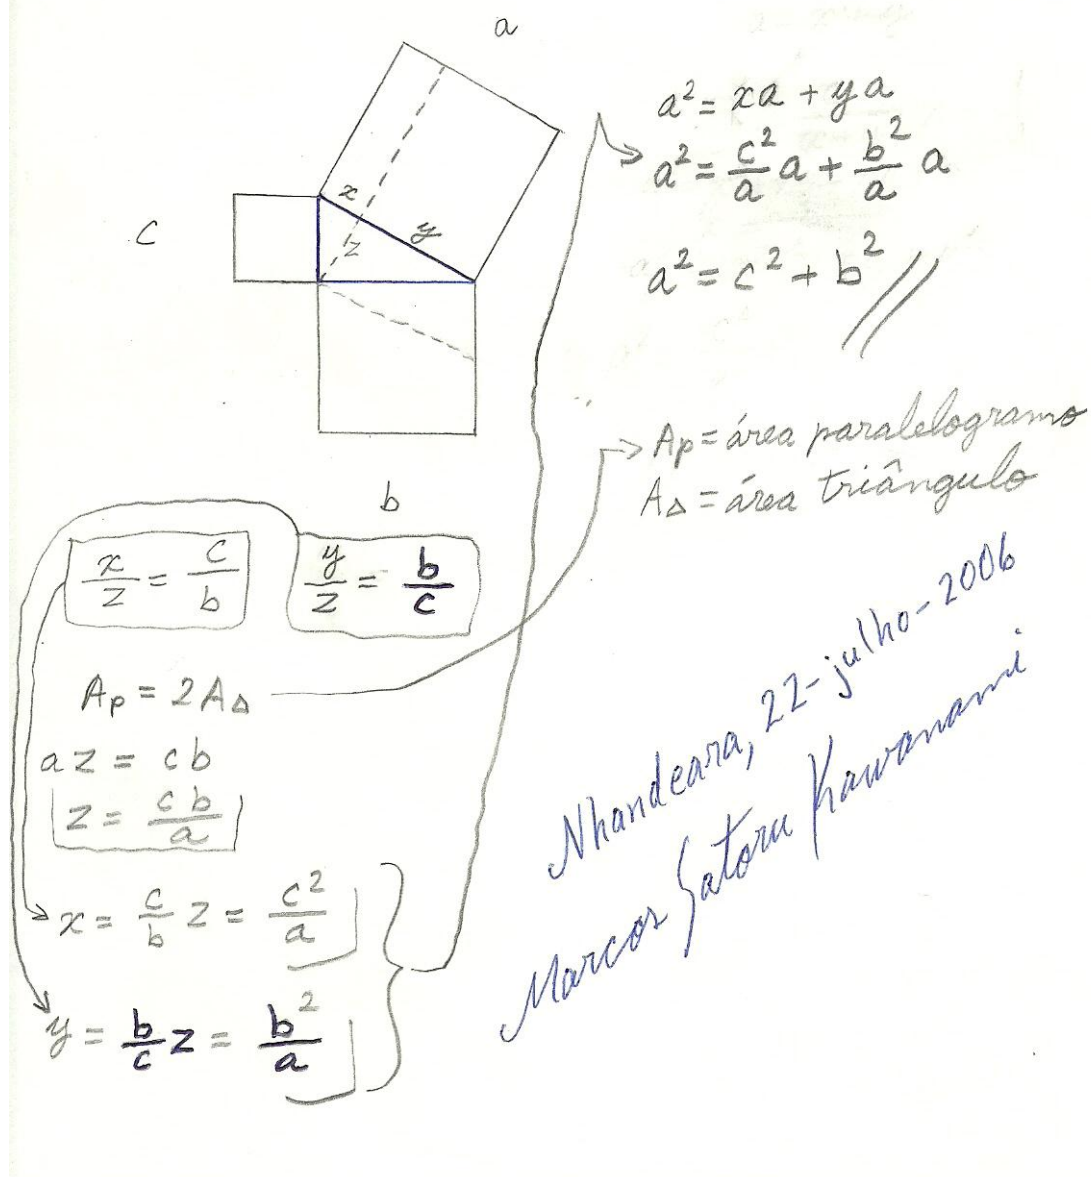 a
c
b
x
y
z
a² = xa + ya
a² = c²/a a + b²/a a
a² = c² + b² //
Ap = área paralelogramo
A∆ = área triângulo
x/z = c/b
y/z = b/c
Ap = 2A∆
az = cb
z = cb/a
x = c/b z = c²/a
y = b/c z = b²/a
Nhandeara, 22-julho-2006
Marcos Satoru Kawanami